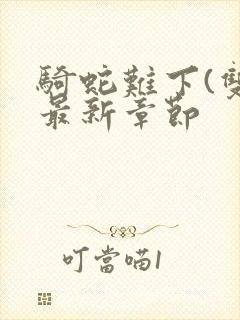 騎蛇難下(雙
最新章節
叮當喵1